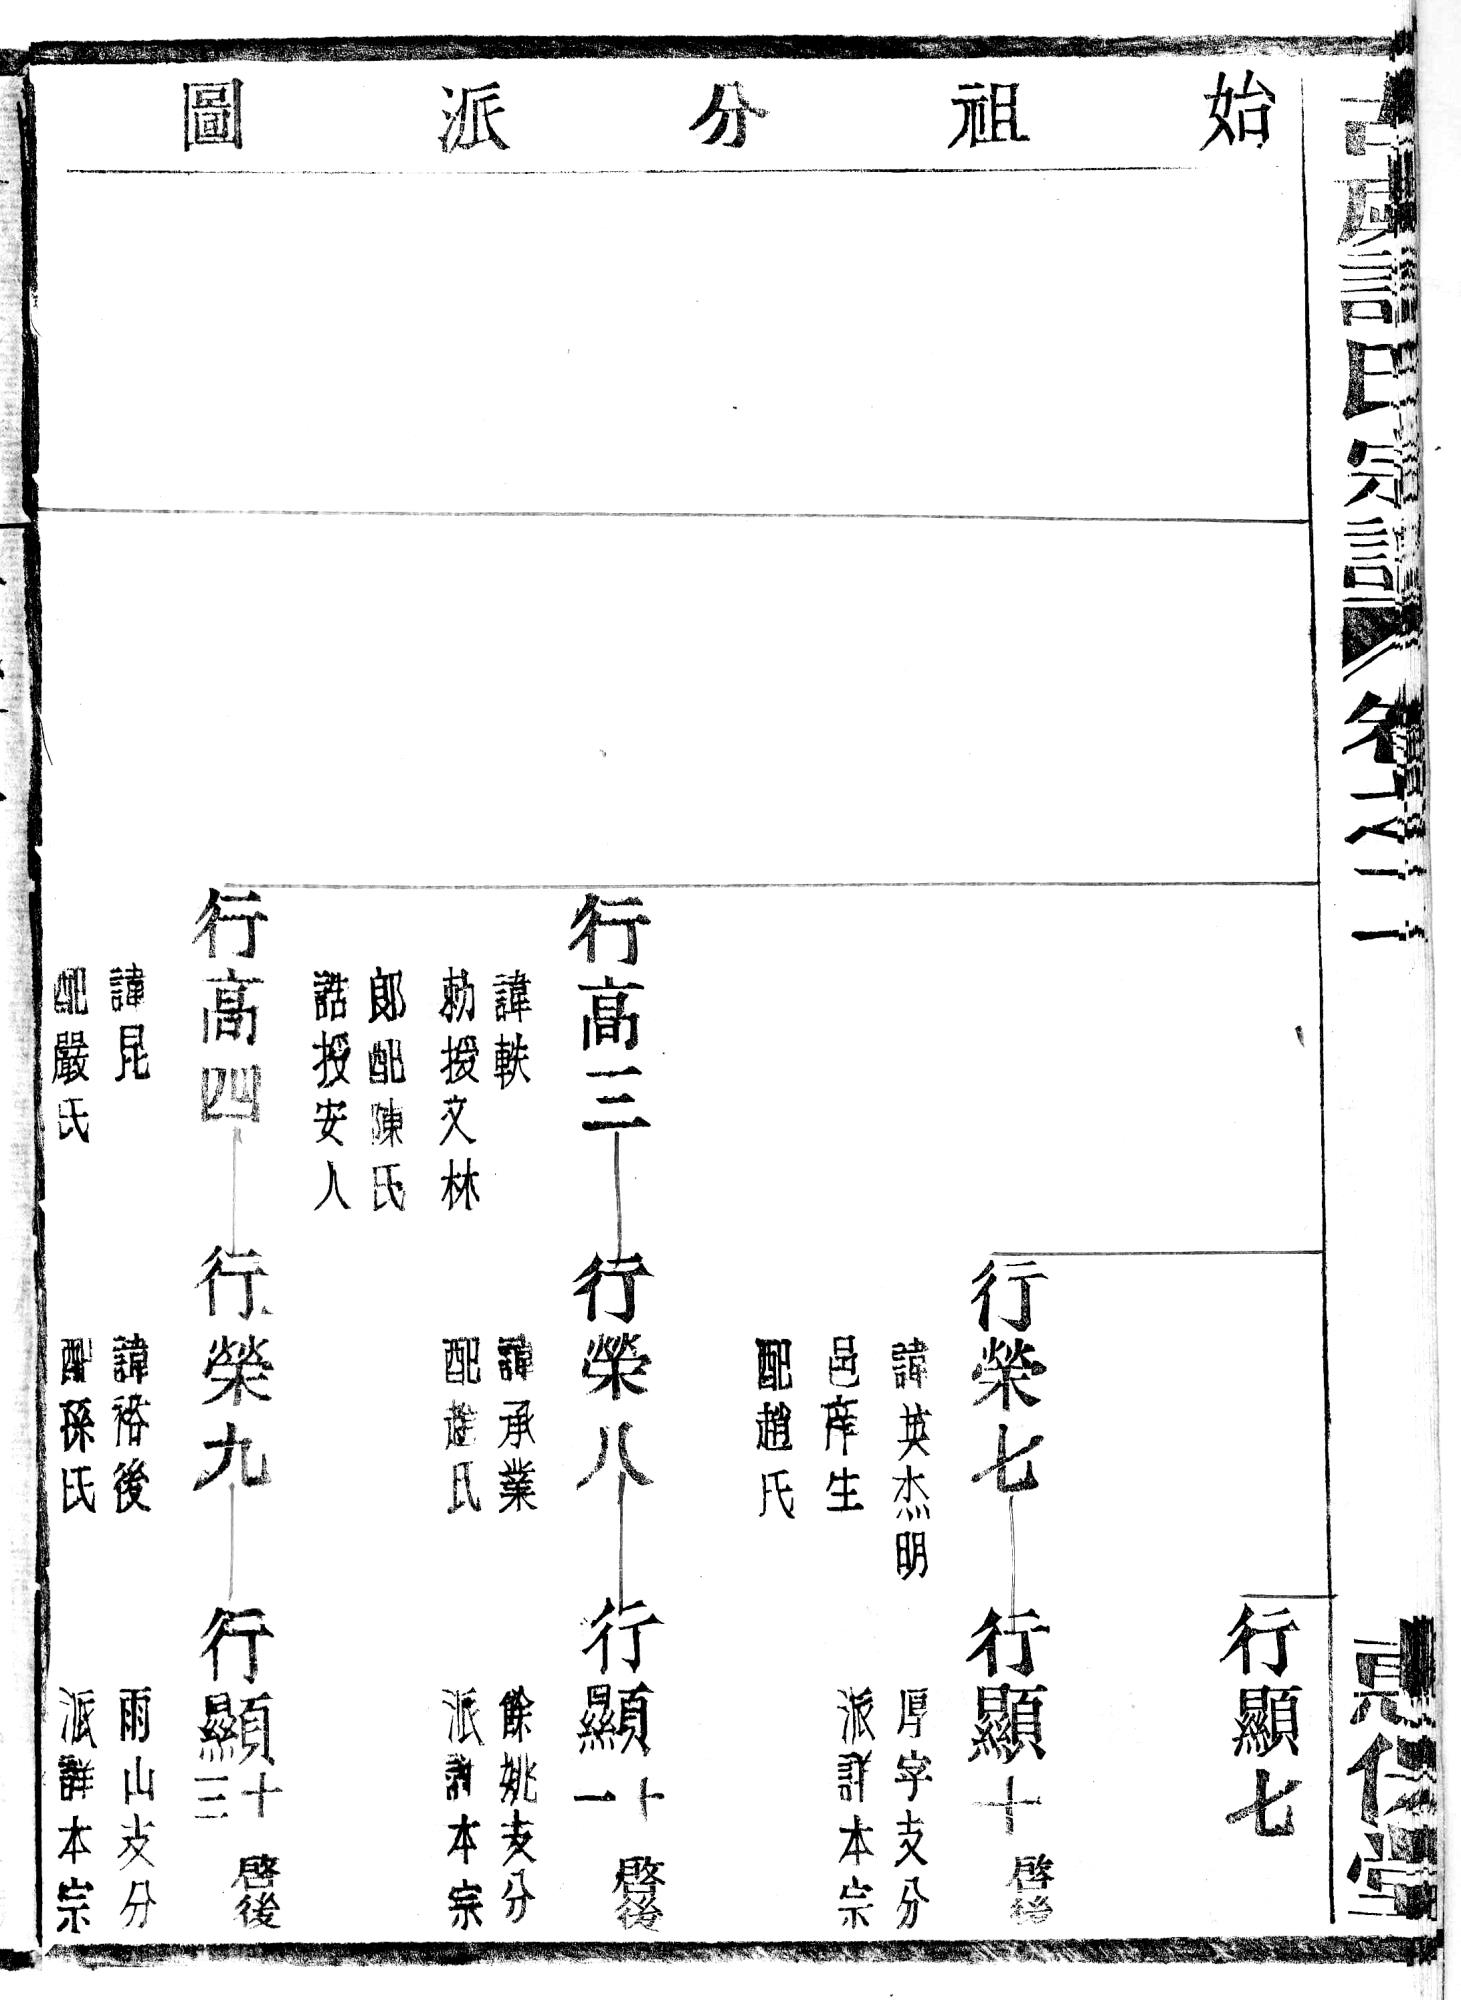 始祖分派圖
行顯七
行榮七
諱英杰明
邑庠生
配趙氏
行顯十
啓後
厚字支分
派詳本宗
行高三
諱軼
勅授文林
郎配陳氏
誥授安人
行榮八
諱承業
配趙氏
行顯十一
啓後
餘姚支分
派詳本宗
行高四
諱昆
配嚴氏
行榮九
諱裕後
配孫氏
行顯十三
啓後
雨山支分
派詳本宗
氏宗譜
卷六二一
堂